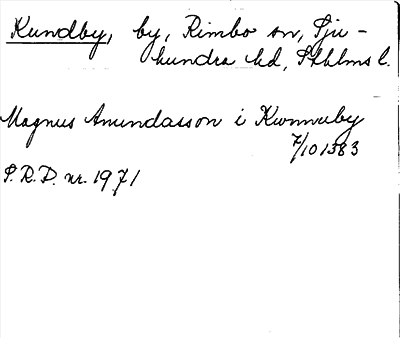 Kundby, by, Rimbo sn, Sju-
hundra hd, Sthlms l.
Magnus Anundasson i Kwnnuby
7/10 1383
S.R.P. nr. 1971